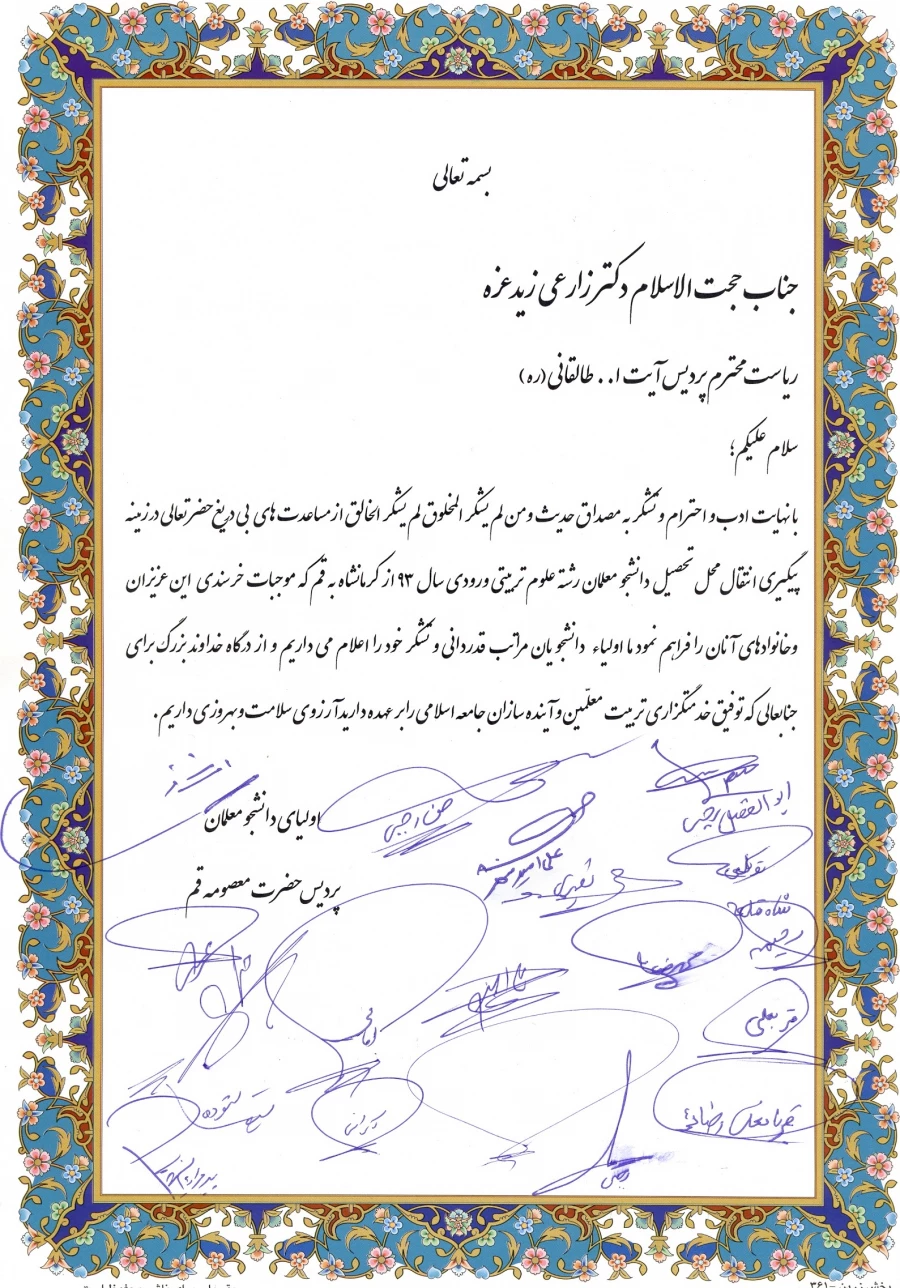 بسمه تعالی
جناب حجت الاسلام دکتر زارعی زید عزه
ریاست محترم پردیس آیت ا.. طالقانی (ره)
سلام علیکم؛
با نهایت ادب و احترام و تشکر به مصداق حدیث و من لم یشکر المخلوق لم یشکر الخالق از مساعدت های بی دریغ حضرتعالی در زمینه
پیگیری انتقال محل تحصیل دانشجو معلمان رشته علوم تربیتی ورودی سال ۹۳ از کرمانشاه به قم که موجبات خرسندی این عزیزان
و خانواده های آنان را فراهم نمود ما اولیاء دانشجویان مراتب قدردانی و تشکر خود را اعلام می داریم و از درگاه خداوند بزرگ برای
جنابعالی که توفیق خدمتگزاری تربیت معلّمین و آینده سازان جامعه اسلامی را بر عهده دارید آرزوی سلامت و بهروزی داریم.
ابوالفضل رجبی
اولیای دانشجو معلمان
پردیس حضرت معصومه قم
رحیمه
قربعلی
امامی
ستوده
قربانعلی رضائی